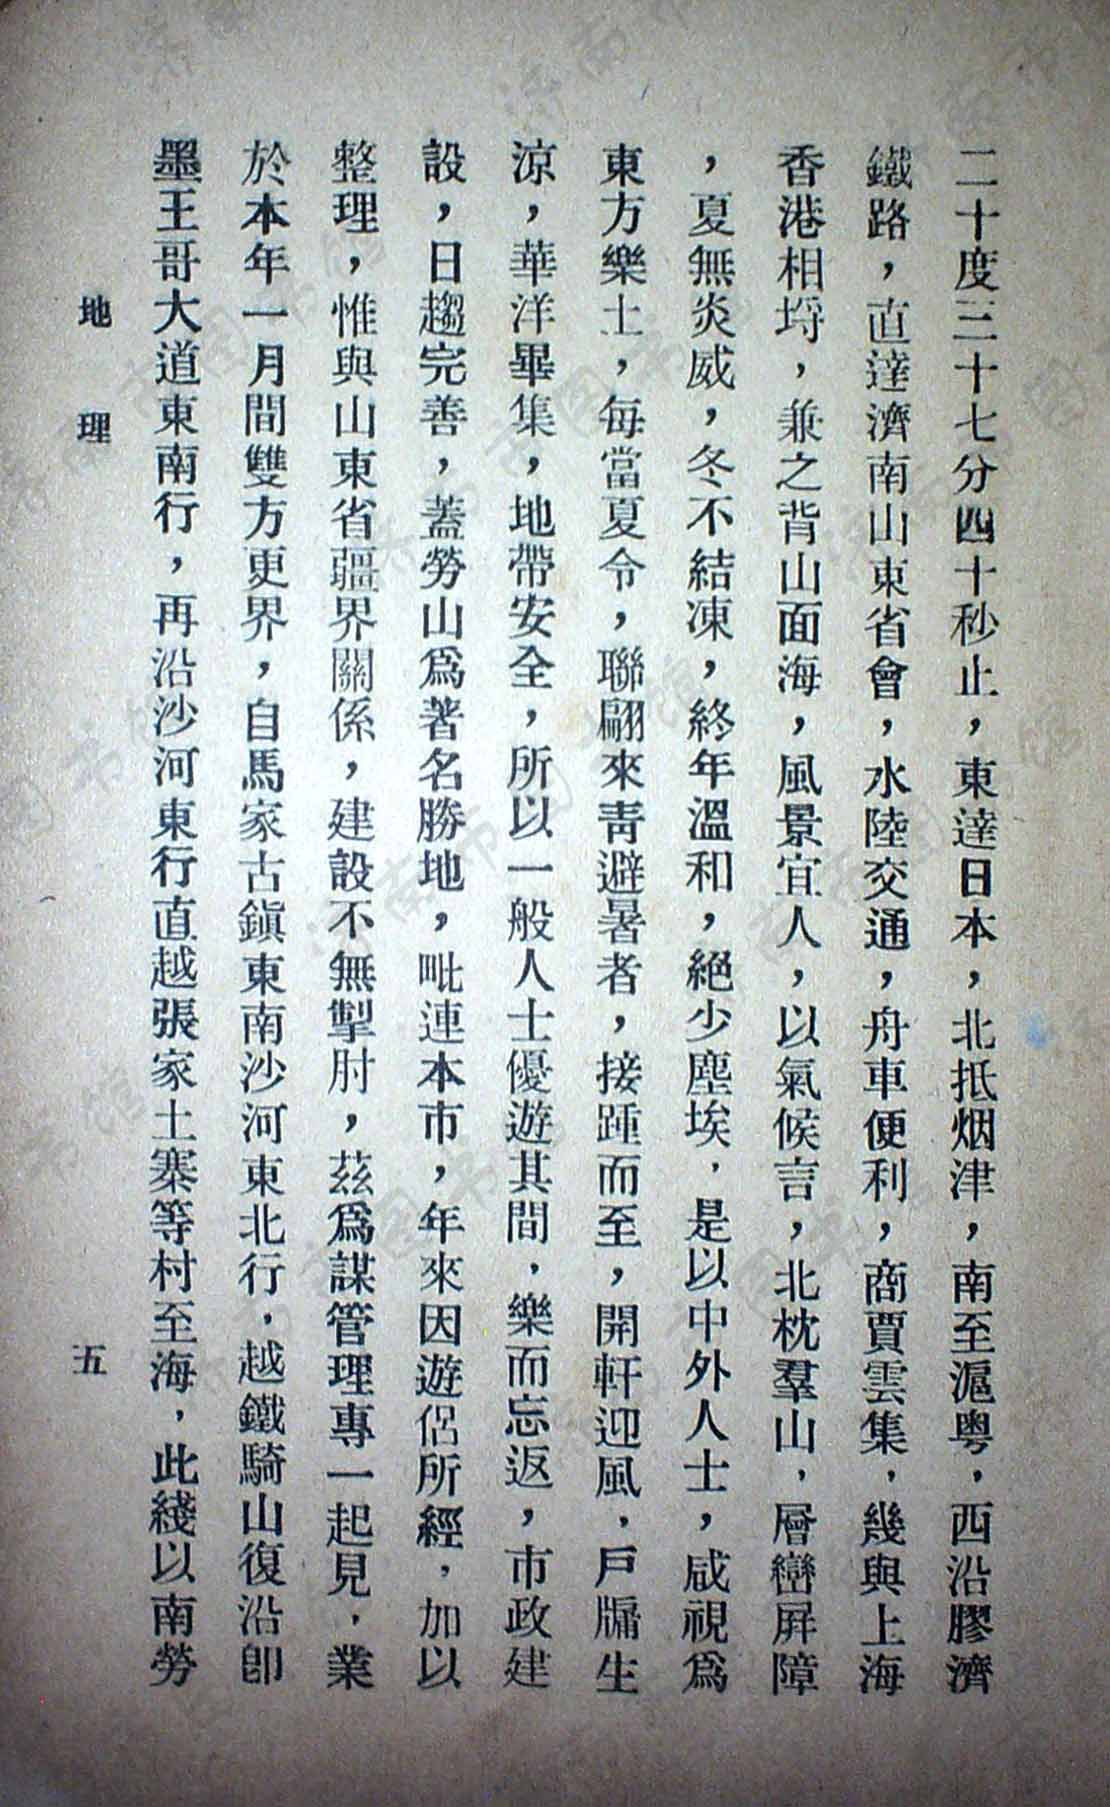 二十度三十七分四十秒止，東達日本，北抵烟津，南至滬粵，西沿膠濟
鐵路，直達濟南山東省會，水陸交通，舟車便利，商賈雲集，幾與上海
香港相埒，兼之背山面海，風景宜人，以氣候言，北枕羣山，層巒屏障
，夏無炎威，冬不結凍，終年溫和，絕少塵埃，是以中外人士，咸視爲
東方樂土，每當夏令，聯翩來靑避暑者，接踵而至，開軒迎風，戶牖生
涼，華洋畢集，地帶安全，所以一般人士優遊其間，樂而忘返，市政建
設，日趨完善，蓋勞山爲著名勝地，毗連本市，年來因遊侶所經，加以
整理，惟與山東省疆界關係，建設不無掣肘，茲爲謀管理專一起見，業
於本年一月間雙方更界，自馬家古鎭東南沙河東北行，越鐵騎山復沿卽
墨王哥大道東南行，再沿沙河東行直越張家土寨等村至海，此綫以南勞
地理
五
济南市图书馆